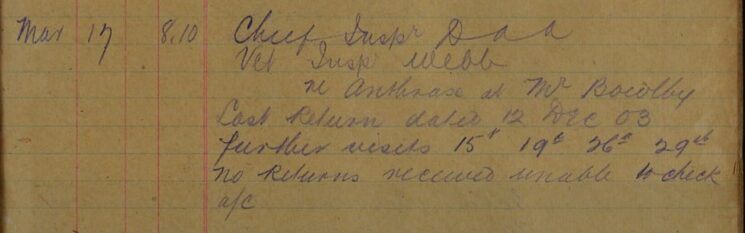 Mar 17 8.10 Chief Inspr D a a
Vet Inspr Webb
re Anthrax at Mr Bowlby
Last Return dated 12 Dec 03
further visits 15th 19th 26th 29th
no Returns received unable to check
a/c